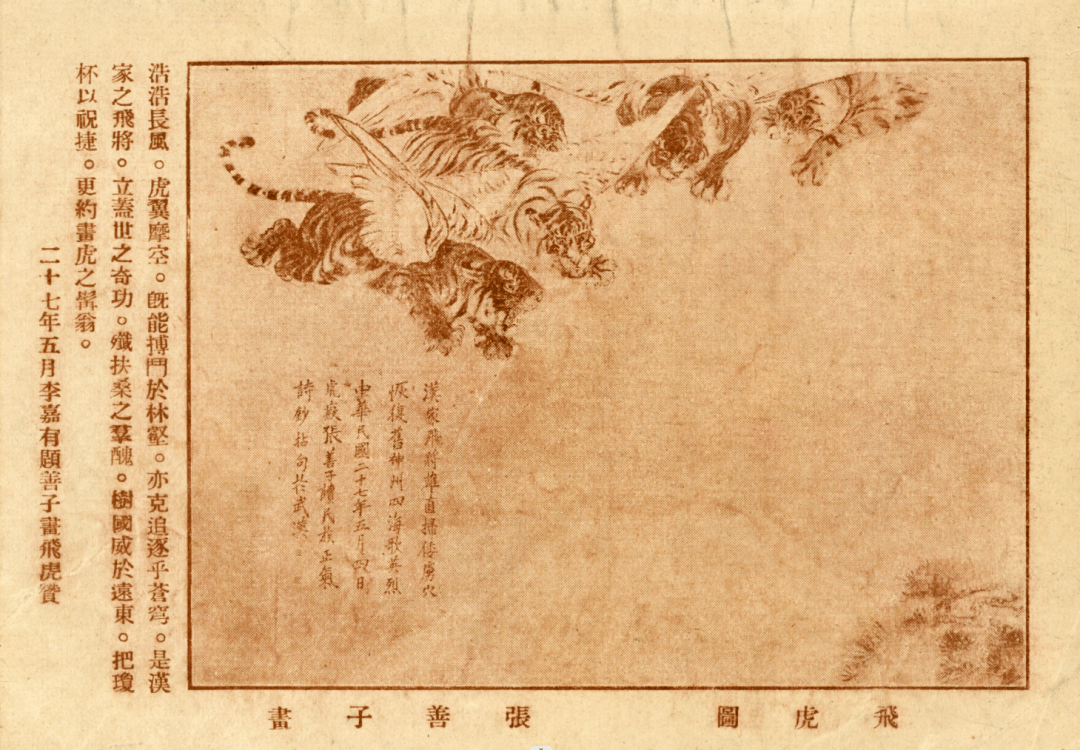 漢家飛將軍直掃倭虜穴
恢復舊神州四海歌英烈
中華民國二十七年五月四日
虎痴張善子讀民族正氣
詩鈔拈句於武漢
浩浩長風。虎翼摩空。旣能搏鬥於林壑。亦克追逐乎蒼穹。是漢
家之飛將。立蓋世之奇功。殲扶桑之羣醜。樹國威於遠東。把瓊
杯以祝捷。更約畫虎之髯翁。
二十七年五月李嘉有題善子畫飛虎贊
飛虎圖 張善子畫